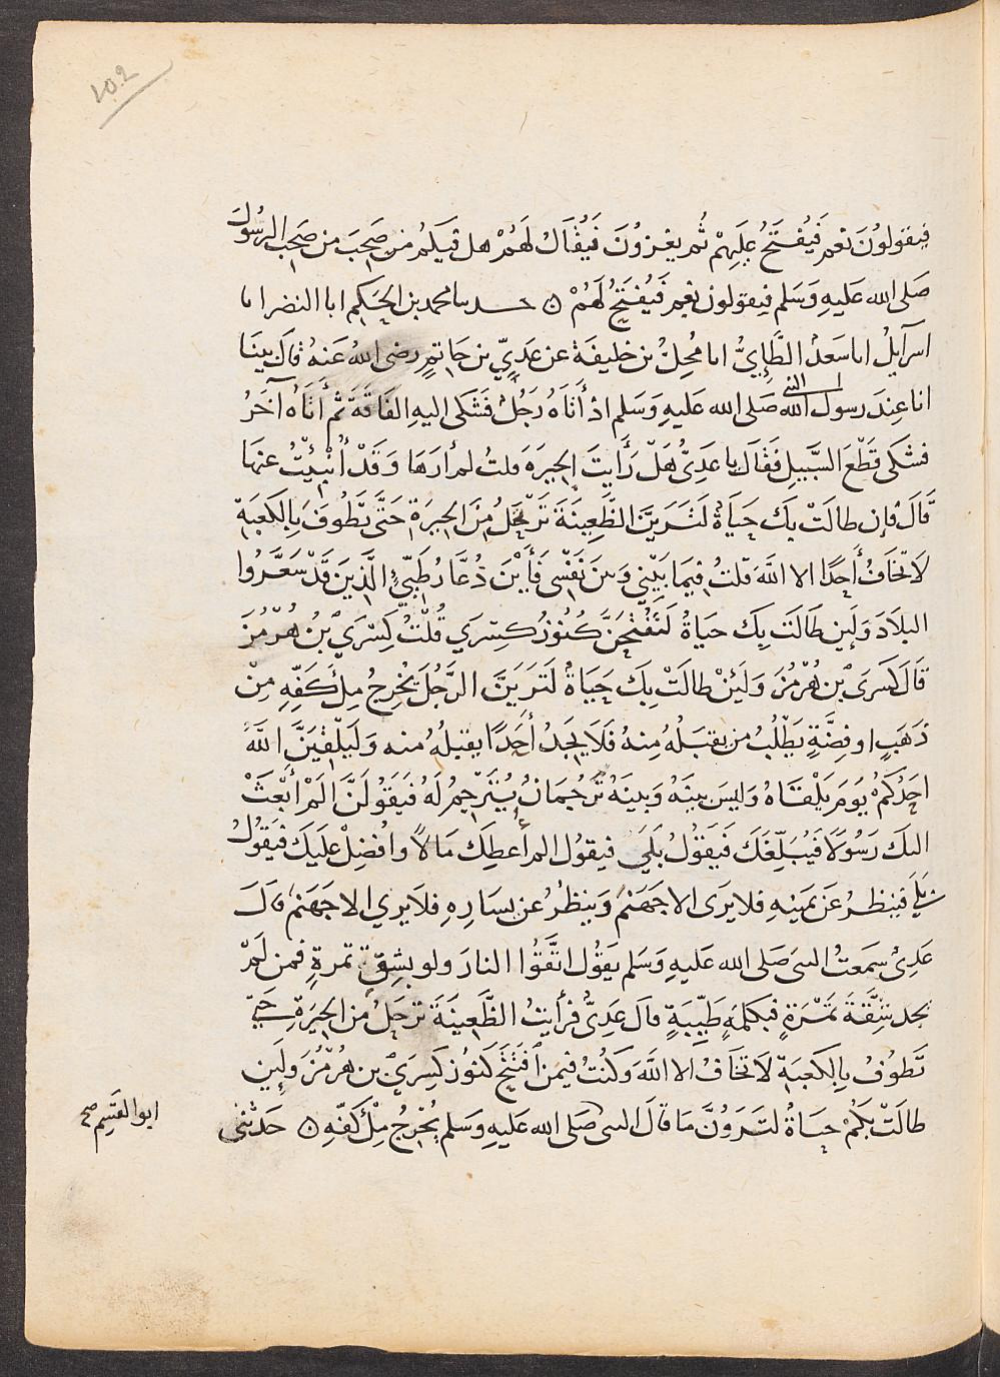 ١٥٢
فيقولوُنَ نعم فَيُفتَحُ عليَهِمْ ثُم يغزوُنَ فَيُقَالُ لهَمُ هل فيكم من صَحِبَ من صَحِبَ الرسُولَ
صَلى الله عَليهِ وَسَلم فيقولون نعم فَيُفتَحُ لهَمُ ۞ حدثنا محمد بن الحَكم انا النضر انا
اسرآيلُ انا سَعدٌ الطَّايِيُّ انا مُحِلُّ بن خليفَة عن عَدِيِّ بن حَاتِمٍ رضى اللهُ عَنهُ قاَلَ بينَا
انا عِندَ رسول الله صَلى الله عَليهِ وَسَلم اذْ أتَاهُ رَجُلٌ فشَكى اليهِ الفَاقَةَ ثم أتَاهُ آخَرُ
النبى
فشكى قطْعَ السَّبيلِ فقَالَ يا عَدِىُّ هَلْ رَأيتَ الحِيرَةَ قلتُ لم أرَهَا وَقَدْ أُنْبِئْتُ عنهَا
قَالَ فإن طالَتْ بِكَ حَيَاةٌ لتَرَيَنَّ الظَّعِينَةَ تَرْتَحِلُ مِنَ الحِيرَةِ حَتَّى تَطُوفَ بِالكَعبَةِ
لا تخَافُ أحَدًا الا اللهَ قلتُ فيمَا بَيْنِي وَبَينَ نَفْسِى فَأَيْنَ دُعَّارُ طَيِّيٍ الَّذِينَ قَدْ سَعَّرُوا
البلادَ وَلَين طَالَت بِكَ حيَاةٌ لتُفْتَحَنَّ كنُوُزُ كِسْرَي قُلْتُ كِسْرَي بْنُ هُرْمُزَ
قَالَ كسرَى بْنِ هُرْمُزَ وَلَئِنْ طالَتْ بِكَ حَيَاةٌ لَتَرَيَنَّ الرَّجُلَ يُخْرِجُ مِلءَ كَفِّهِ مِنْ
ذَهَبٍ او فِضَّةٍ يَطْلُبُ من يقبَلُهُ مِنهُ فَلَا يَجِدُ أحَدًا يقبلهُ منه وَليَلْقَيَنَّ اللهَ
احَدُكُمْ يوَمَ يَلْقَاهُ وَليسَ بينَهُ وَبينَهُ تَرْجُمَانٌ يُتَرْجِمُ لَهُ فيَقُولَنَّ الَمْ أبْعَثْ
اليكَ رَسُوَلًا فَيُبَلِّغَكَ فَيَقوُلُ بَلَى فيقوُل الم أعطِكَ مَالًا وأُفضِلْ عليَكَ فيَقوُلُ
بَلَى فينظرُ عَن يمَينهِ فلا يرَى الا جَهَنمَ وَينظُرُ عن يسَارِهِ فلا يري الا جَهَنمَ قالَ
عَدِىٌ سمَعتُ النبى صَلى الله عَليهِ وَسَلم يقوُل اتَّقُوا النارَ ولو بشِقِّ تمرةٍ فمن لَمْ
يجد شِقَّةَ تَمْرَةٍ فبكلمَةٍ طَيِّبَةٍ قالَ عَدِىٌّ فرَأيتُ الظَّعِينَةَ ترتحَلُ من الحيَرةِ حَتىَّ
تَطوُفَ بالكَعبَةِ لاَ تخَافُ الا اللهَ وَكنُتُ فيمَن اُفتَتَحَ كنُوزَ كسِرَي بن هُرمُزَ ولَين
طالَتْ بِكُمْ حيَاةٌ لتَرَوُنَّ مَا قالَ النبى صَلى الله عَليهِ وَسَلم يُخْرِجُ مِلْءَ كَفِّهِ ۞ حَدثنى
ابوا لقَسِم صح